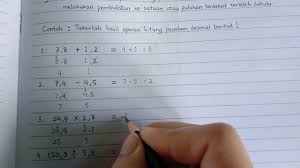 melakukan pembulatan ke satuan atau puluhan terdekat terlebih dahulu
Contoh : Taksirlah hasil operasi hitung pecahan desimal berikut !
1. 3,8 + 1,2 = 4 + 1 = 5
3,8 1,2
4 1
2. 7,4 - 4,5 = 7 - 5 = 2
7,4 4,5
7 5
3. 24,9 × 2,7 =
24,9 2,7
25 3
4. 120,3 ÷ 5,8